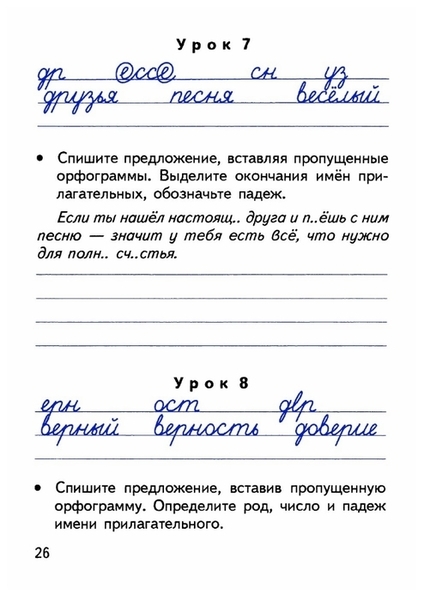 Урок 7
др ессе сн уз
друзья песня весёлый
• Спишите предложение, вставляя пропущенные
орфограммы. Выделите окончания имён при-
лагательных, обозначьте падеж.
Если ты нашёл настоящ.. друга и п..ёшь с ним
песню — значит у тебя есть всё, что нужно
для полн.. сч..стья.
Урок 8
ерн ост двр
верный верность доверие
• Спишите предложение, вставив пропущенную
орфограмму. Определите род, число и падеж
имени прилагательного.
26